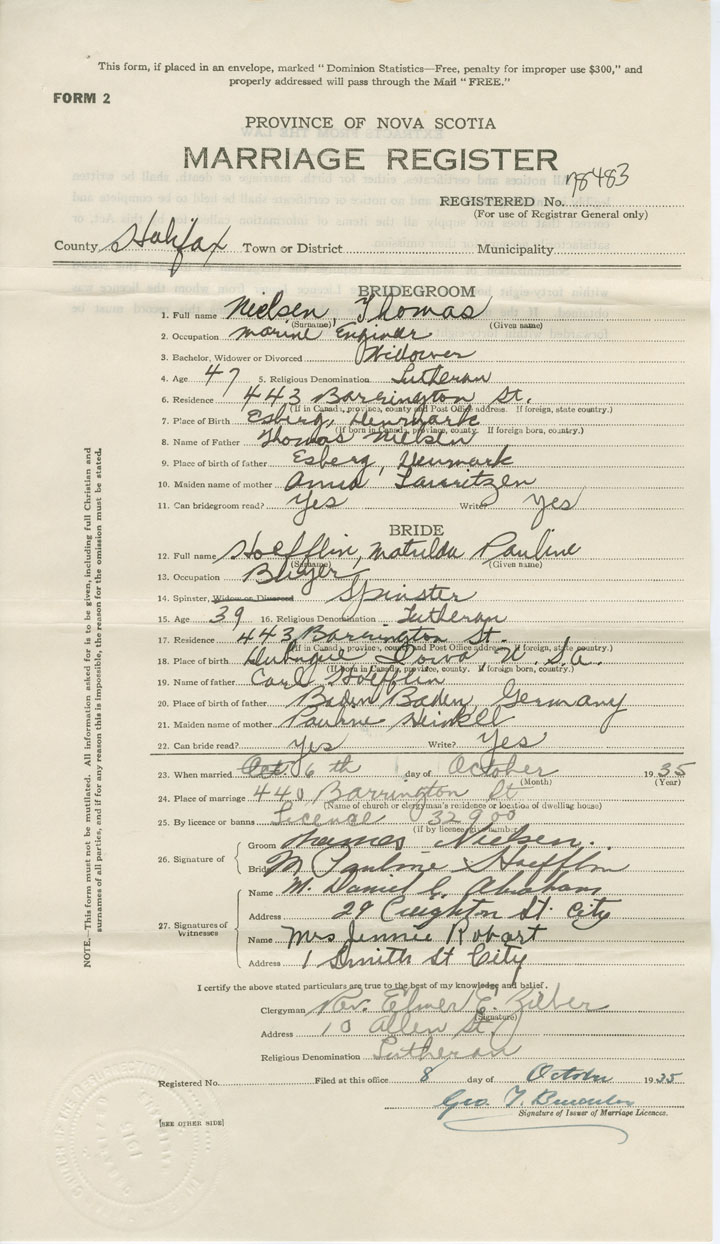 This form, if placed in an envelope, marked "Dominion Statistics—Free, penalty for improper use $300," and
properly addressed will pass through the Mail "FREE."
FORM 2
PROVINCE OF NOVA SCOTIA
MARRIAGE REGISTER
REGISTERED No. 78483
(For use of Registrar General only)
County Halifax Town or District Municipality
BRIDEGROOM
1. Full name Nielsen, Thomas
(Surname) (Given name)
2. Occupation Marine Enginer
3. Bachelor, Widower or Divorced Widower
4. Age 47 5. Religious Denomination Lutheran
6. Residence 443 Barrington St.
(If in Canada, province, county and Post Office address. If foreign, state country.)
7. Place of Birth Esberg, Denmark
(If born in Canada, province, county. If foreign born, country.)
8. Name of Father Thomas Nielsen
9. Place of birth of father Esberg, Denmark
10. Maiden name of mother Anna Lauritzen
11. Can bridegroom read? Yes Write? Yes
BRIDE
12. Full name Hoefflin, Matilda Pauline
(Surname) (Given name)
13. Occupation Buyer
14. Spinster, Widow or Divorced Spinster
15. Age 39 16. Religious Denomination Lutheran
17. Residence 443 Barrington St.
(If in Canada, province, county and Post Office address. If foreign, state country.)
18. Place of birth Dubuque Iowa, U.S.A.
(If born in Canada, province, county. If foreign born, country.)
19. Name of father Carl Hoefflin
20. Place of birth of father Baden Baden, Germany
21. Maiden name of mother Pauline Heinkell
22. Can bride read? Yes Write? Yes
23. When married Oct 6th day of October 1935
(Month) (Year)
24. Place of marriage 440 Barrington St
(Name of church or clergyman's residence or location of dwelling house)
25. By licence or banns License 32900
(If by licence, give number)
26. Signature of
Groom Thomas Nielsen
Bride M Pauline Hoefflin
27. Signatures of Witnesses
Name M. Daniel C. Abraham
Address 29 Creighton St. City
Name Mrs Jennie Robart
Address 1 Smith St City
I certify the above stated particulars are true to the best of my knowledge and belief.
Clergyman Rev. Elmer E. Zieber
(Signature)
Address 10 Allen St.
Religious Denomination Lutheran
Registered No. Filed at this office 8 day of October 1935
Geo. T.
Signature of Issuer of Marriage Licences.
[SEE OTHER SIDE]
NOTE.—This form must not be mutilated. All information asked for is to be given, including full Christian and
surnames of all parties, and if for any reason this is impossible, the reason for the omission must be stated.